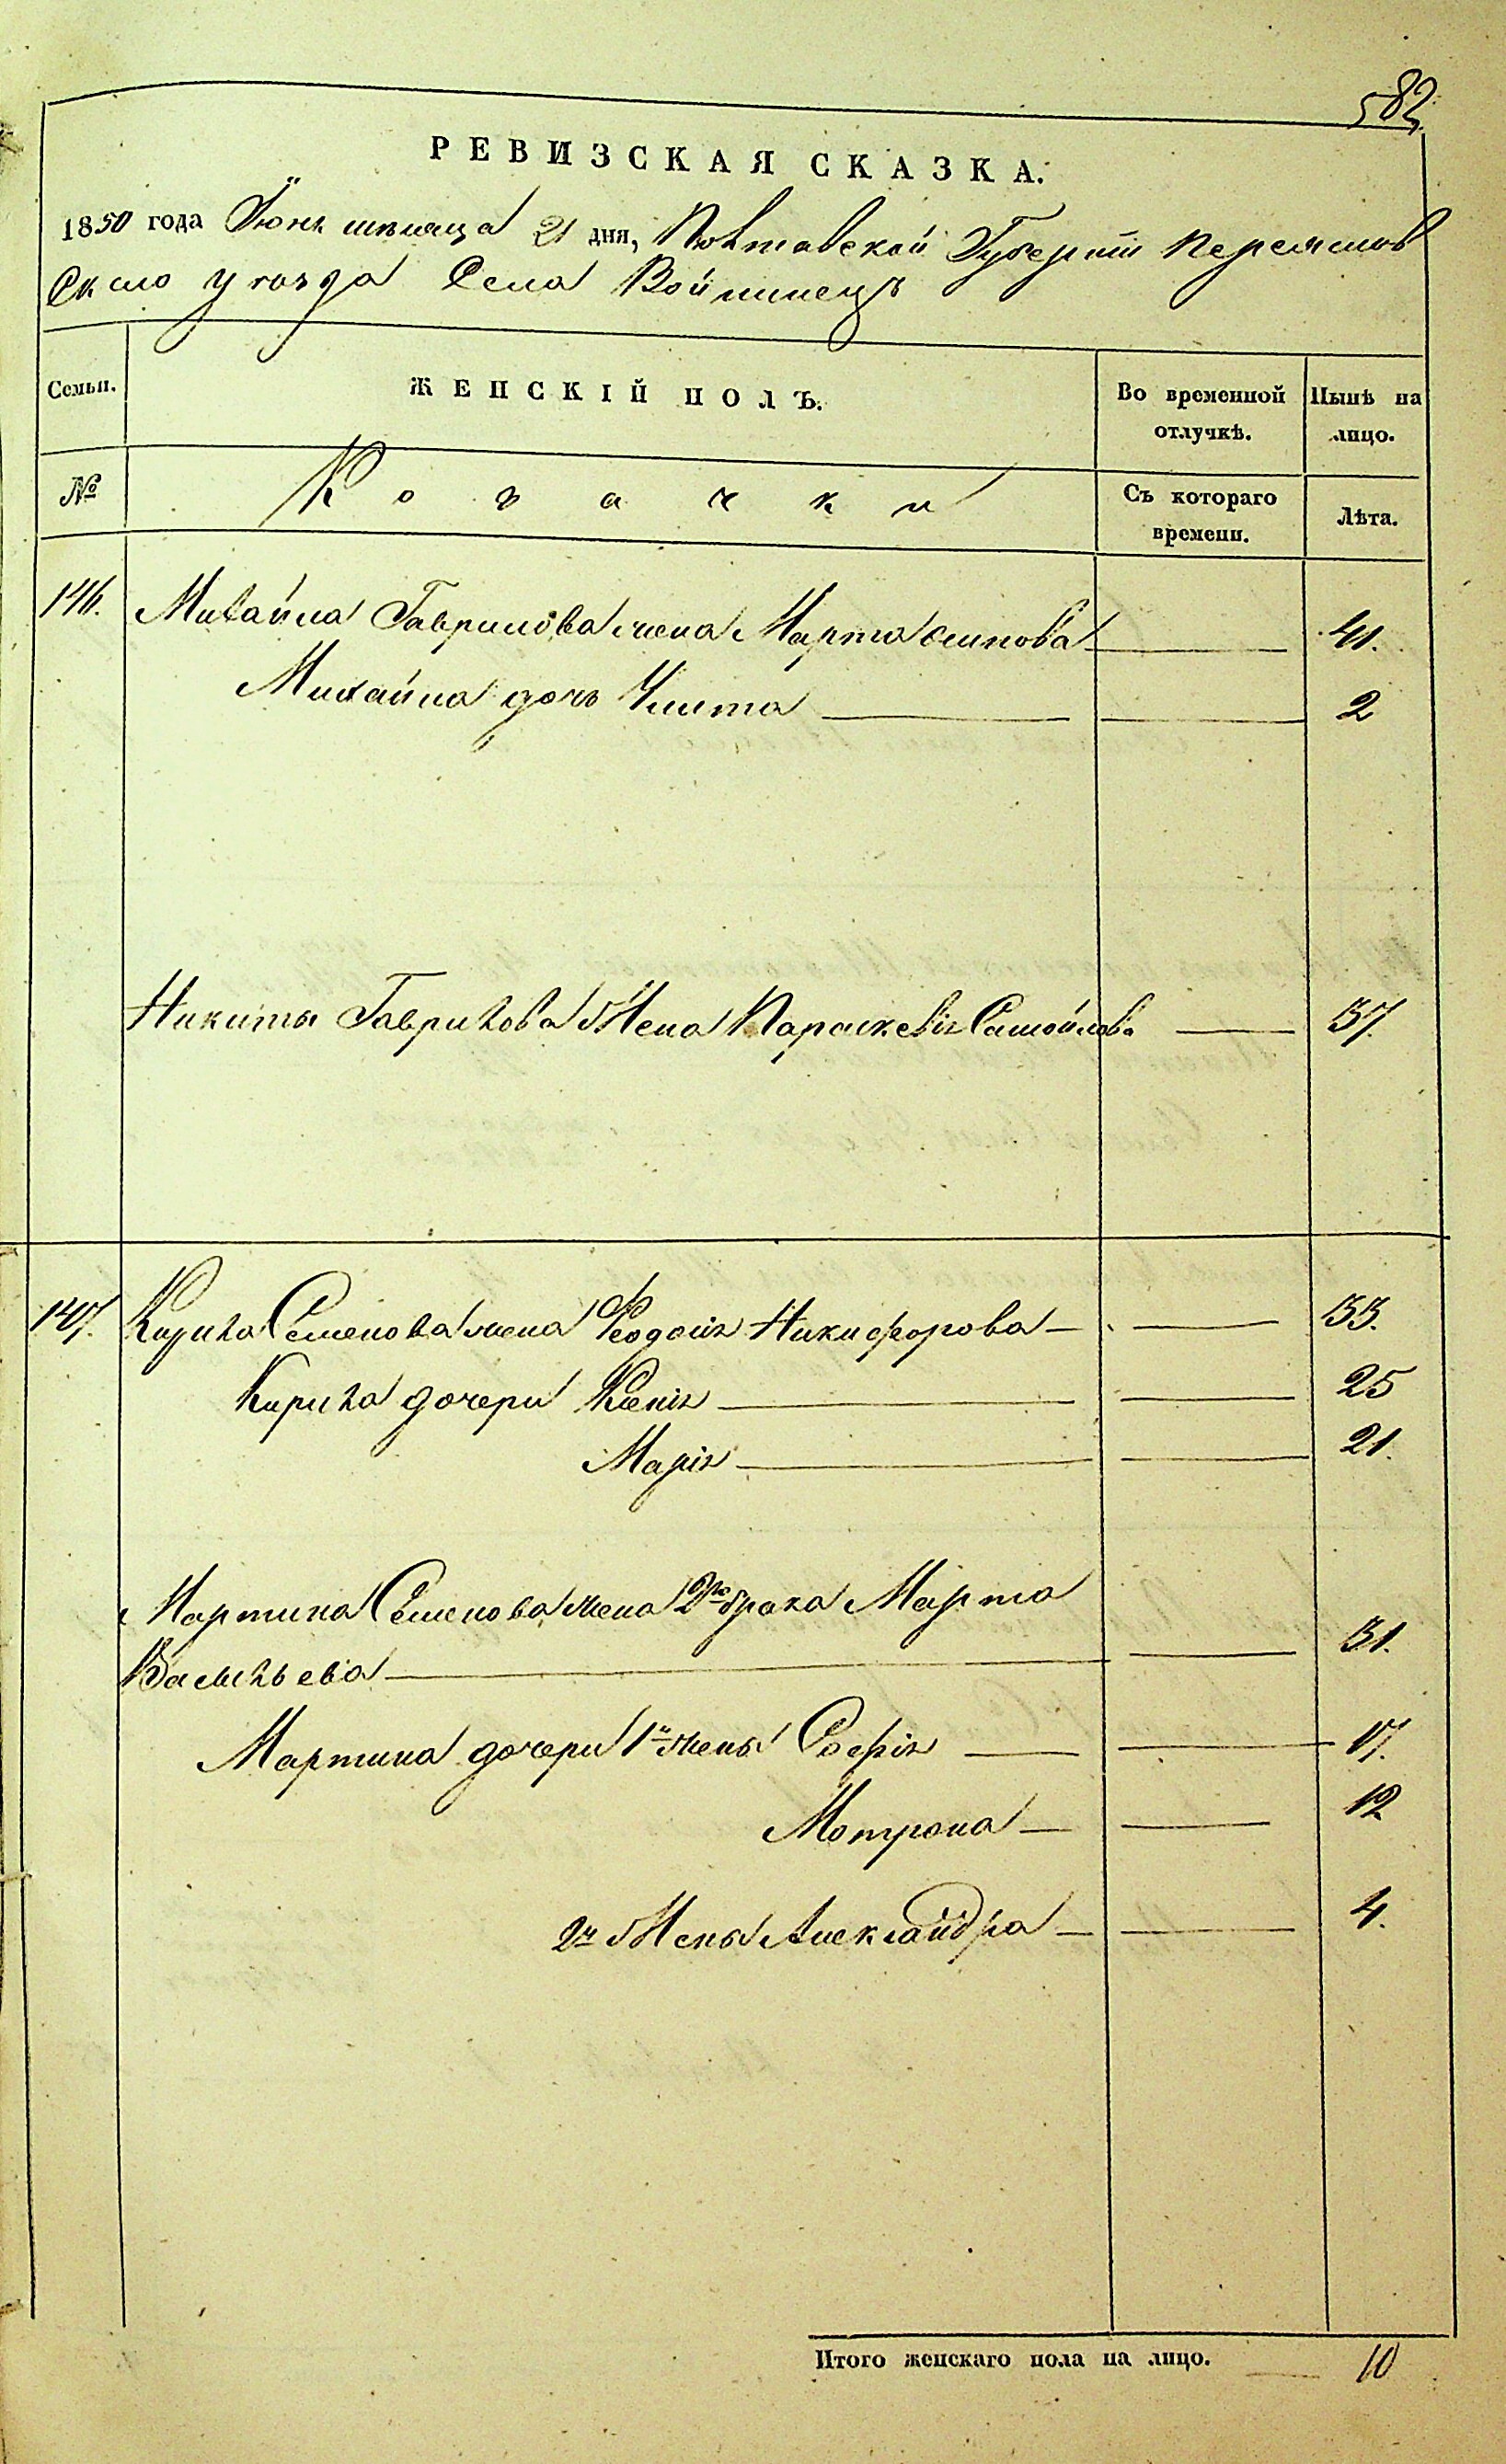 582
РЕВИЗСКАЯ СКАЗКА.
1850 года Іюня мѣсяца 21 дня, Полтавской Губерніи Переяслов
скаго уѣзда Села Войтинецъ
Семьи. ЖЕНСКІЙ ПОЛЪ. Во временной отлучкѣ. Нынѣ на лицо.
№ Козачки Съ котораго времени. Лѣта.
146. Михайла Гаврилова жена Марта Осипова 41.
Михайла дочь Улита 2
Никиты Гаврилова Жена Параскевія Самойлова 37.
147. Кирила Семенова жена Феодосія Никифорова 53.
Кирила дочери Ксенія 25
Марія 21.
Мартина Семенова жена 2го брака Марта
Васильева 31.
Мартина дочери 1й жены Софія 17.
Мотрона 12
2й Жены Александра 4.
Итого женскаго пола на лицо. 10